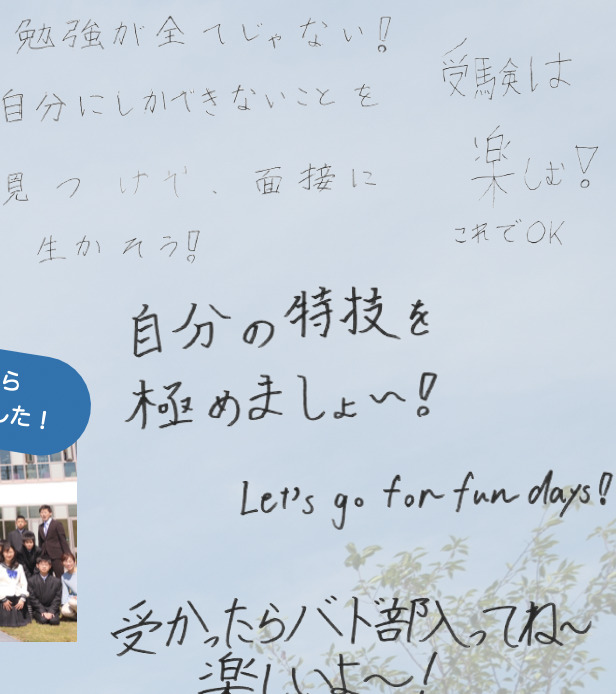 勉強が全てじゃない!
自分にしかできないことを
見つけて、面接に
生かそう!
受験は
楽しむ!
これでOK
自分の特技を
極めましょ〜!
ら
した!
Let's go for fun days!
受かったらバド部入ってね〜
楽しいよ〜!